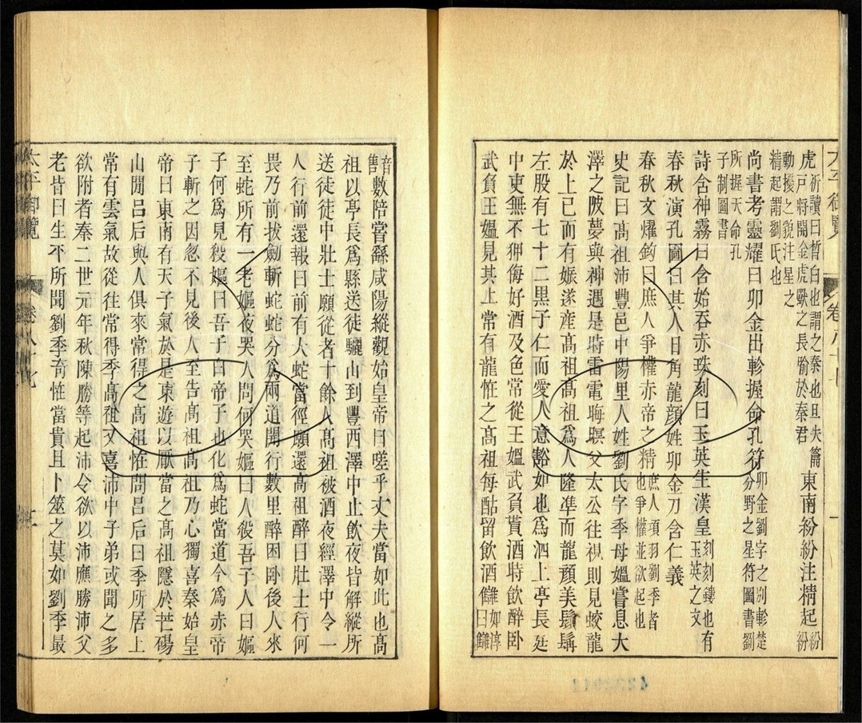 虎祈讀曰哲白也謂之秦也旦夫籥戶將開金虎獸之長喻於秦君東南紛紛注精起紛
動擾之貌注星之精起謂劉氏也
尚書考靈耀曰卯金出軫握命孔符卯金劉字之別軫楚分野之星符圖書劉
所握天命孔子制圖書
詩含神霧曰含始吞赤珠刻曰玉英生漢皇刻刻鏤也有玉英之文
春秋演孔圖曰其人日角龍顏姓卯金刀含仁義
春秋文燿鉤曰庶人爭權赤帝之精庶人項羽劉季者也爭權並欲起也
史記曰高祖沛豐邑中陽里人姓劉氏字季母媼嘗息大
澤之陂夢與神遇是時雷電晦暝父太公往視則見蛟龍
於上已而有娠遂產高祖高祖爲人隆準而龍顏美鬚髯
左股有七十二黑子仁而愛人意豁如也爲泗上亭長廷
中吏無不狎侮好酒及色常從王媼武負貰酒時飲醉臥
武負王媼見其上常有龍怪之高祖每酤留飲酒讎如淳曰讎
音售數陪嘗繇咸陽縱觀始皇帝曰嗟乎丈夫當如此也高
祖以亭長爲縣送徒驪山到豐西澤中止飲夜皆解縱所
送徒徒中壯士願從者十餘人高祖被酒夜經澤中令一
人行前還報曰前有大蛇當徑願還高祖醉曰壯士行何
畏乃前拔劍斬蛇蛇分爲兩道開行數里醉困臥後人來
至蛇所有一老嫗夜哭人問何哭嫗曰人殺吾子人曰嫗
子何爲見殺嫗曰吾子白帝子也化爲蛇當道今爲赤帝
子斬之因忽不見後人至告高祖高祖乃心獨喜秦始皇
帝曰東南有天子氣於是東遊以厭當之高祖隱於芒碭
山間呂后與人俱來常得之高祖怪問呂后曰季所居上
常有雲氣故從往常得季高祖又喜沛中子弟或聞之多
欲附者秦二世元年秋陳勝等起沛令欲以沛應勝沛父
老皆曰生平所聞劉季奇怪當貴且卜筮之莫如劉季最
太平御覽
卷八十七
一